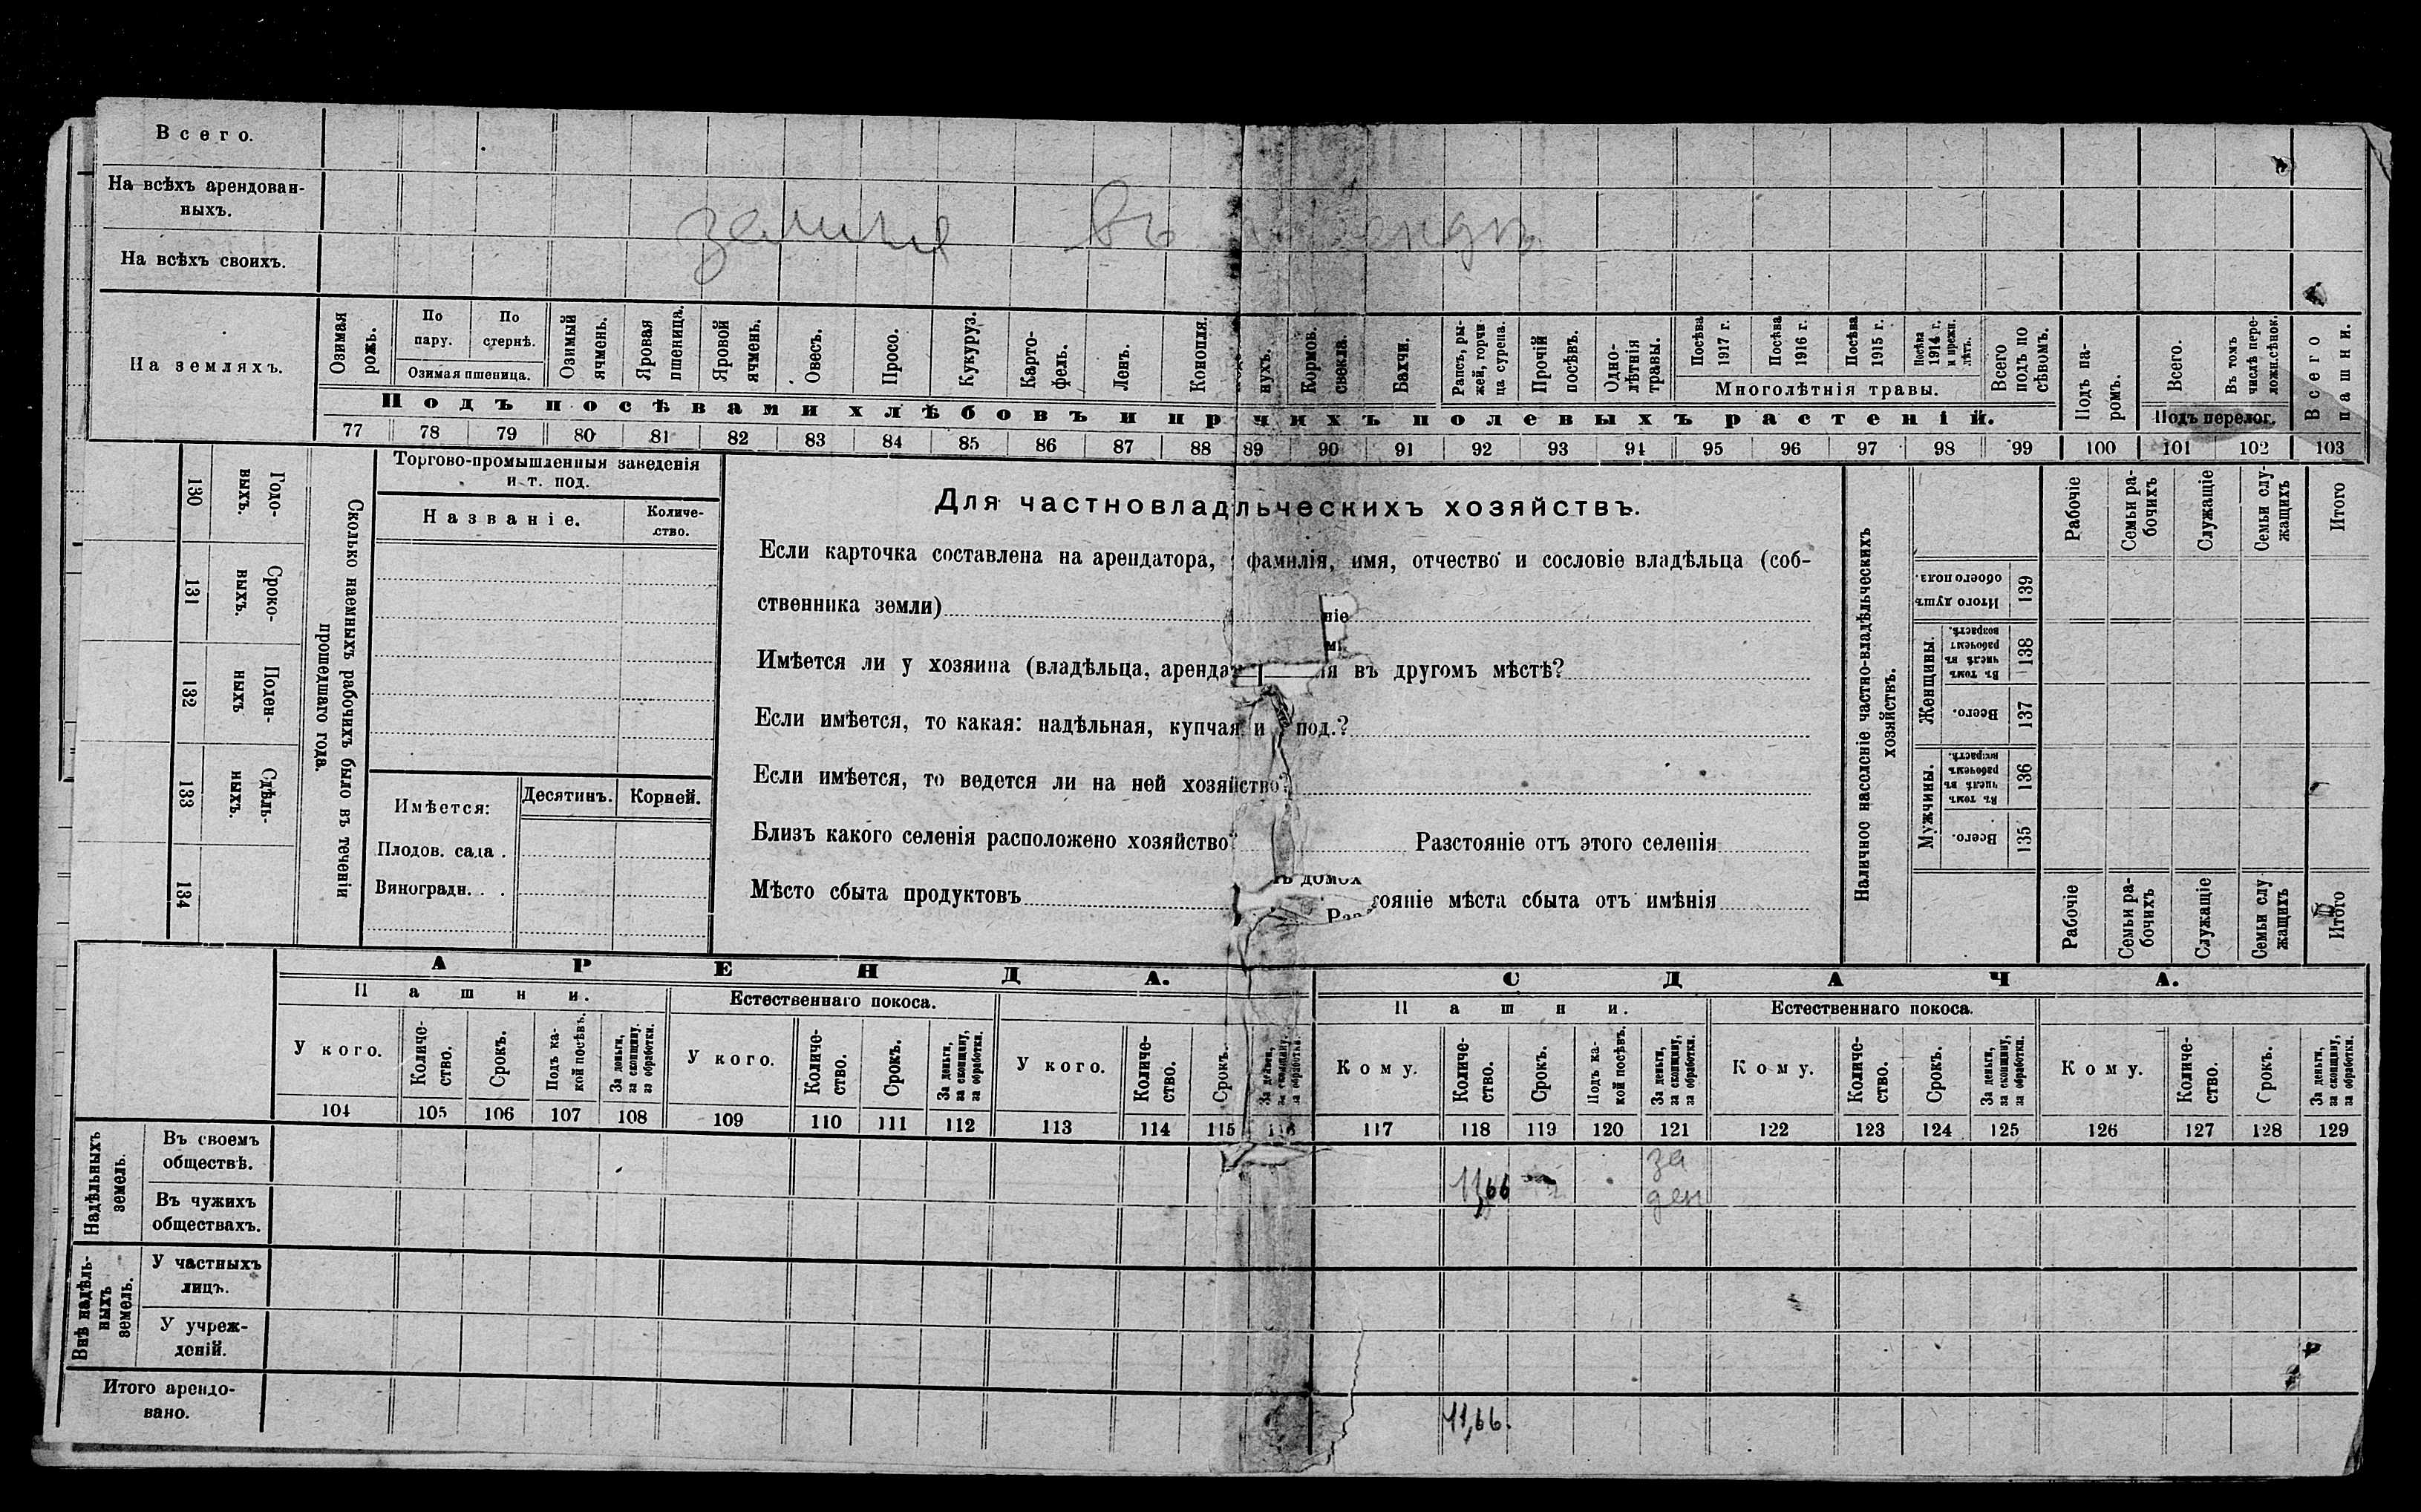 Всего.
На всѣхъ арендован-
ныхъ.
земля въ арендѣ
На всѣхъ своихъ.
На земляхъ.
Озимая рожь.
По пару.
По стернѣ.
Озимая пшеница.
Озимый ячмень.
Яровая пшеница.
Яровой ячмень.
Овесъ.
Просо.
Кукуруз.
Карто-
фель.
Ленъ.
Конопля.
нухъ.
Кормов. свекла.
Бахчи.
Рапсъ, ры-
жей, горчи
ца сурепа.
Прочій посѣвъ.
Одно-
лѣтнія
травы.
Посѣва 1917 г.
Посѣва 1916 г.
Посѣва 1915 г.
Посѣва 1914 г. и прежн. лѣтъ.
Многолѣтнія травы.
Всего подъ по
сѣвомъ.
Подъ па-
ромъ.
Всего.
Въ томъ числѣ пере-
ложн.сѣнок.
Подъ перелог.
Всего пашни.
Подъ посѣвами хлѣбовъ и прчихъ полевыхъ растеній.
77 78 79 80 81 82 83 84 85 86 87 88 89 90 91 92 93 94 95 96 97 98 99 100 101 102 103
130 Годо-
выхъ.
131 Сроко-
выхъ.
132 Поден-
ныхъ
133 Сдѣль-
ныхъ.
134
Сколько наемныхъ рабочихъ было въ теченіи
прошедшаго года.
Торгово-промышленныя заведенія
и т. под.
Названіе.
Количе-
ство.
Имѣется:
Десятинъ.
Корней.
Плодов. сада .
Виноградн. . .
Для частновладльческихъ хозяйствъ.
Если карточка составлена на арендатора, фамилія, имя, отчество и сословіе владѣльца (соб-
ственника земли)
ніе
Имѣется ли у хозяина (владѣльца, аренда ія въ другомъ мѣстѣ?
Если имѣется, то какая: надѣльная, купчая и под.?
Если имѣется, то ведется ли на ней хозяйство?
Близъ какого селенія расположено хозяйство? Разстояніе отъ этого селенія
ъ домох
Мѣсто сбыта продуктовъ тояніе мѣста сбыта отъ имѣнія
Наличное населеніе частно-владѣльческихъ
хозяйствъ.
Рабочіе
Семьи ра-
бочихъ
Служащіе
Семьи слу-
жащихъ
Итого
Итого душъ обоего пола. 139
Женщины.
Въ томъ числѣ въ рабочемъ возрастѣ. 138
Всего. 137
Мужчины.
Въ томъ числѣ въ рабочемъ возрастѣ. 136
Всего. 135
Рабочіе
Семьи ра-
бочихъ
Служащіе
Семьи слу
жащихъ
Итого
АРЕНДА.
СДАЧА.
Пашни.
Естественнаго покоса.
Пашни.
Естественнаго покоса.
У кого.
Количе-
ство.
Срокъ.
Подъ ка-
кой посѣвъ.
За деньги,
за скопщину.
за обработки.
У кого.
Количе-
ство.
Срокъ.
За деньги,
за скопщину,
за обработки.
У кого.
Количе-
ство.
Срокъ.
За деньги,
за скопщину.
за обработки.
Кому.
Количе-
ство.
Срокъ.
Подъ ка-
кой посѣвъ.
За деньги,
за скопщину,
за обработки.
Кому.
Количе-
ство.
Срокъ.
За деньги,
за скопщину,
за обработки.
Кому.
Количе-
ство.
Срокъ.
За деньги,
за скопщину,
за обработки.
104 105 106 107 108 109 110 111 112 113 114 115 116 117 118 119 120 121 122 123 124 125 126 127 128 129
Надѣльныхъ
земель.
Въ своемъ
обществѣ.
11,66
за
ден
Въ чужихъ
обществахъ.
Внѣ надѣль-
ныхъ
земель.
У частныхъ
лицъ.
У учреж-
деній.
Итого арендо-
вано.
11,66.